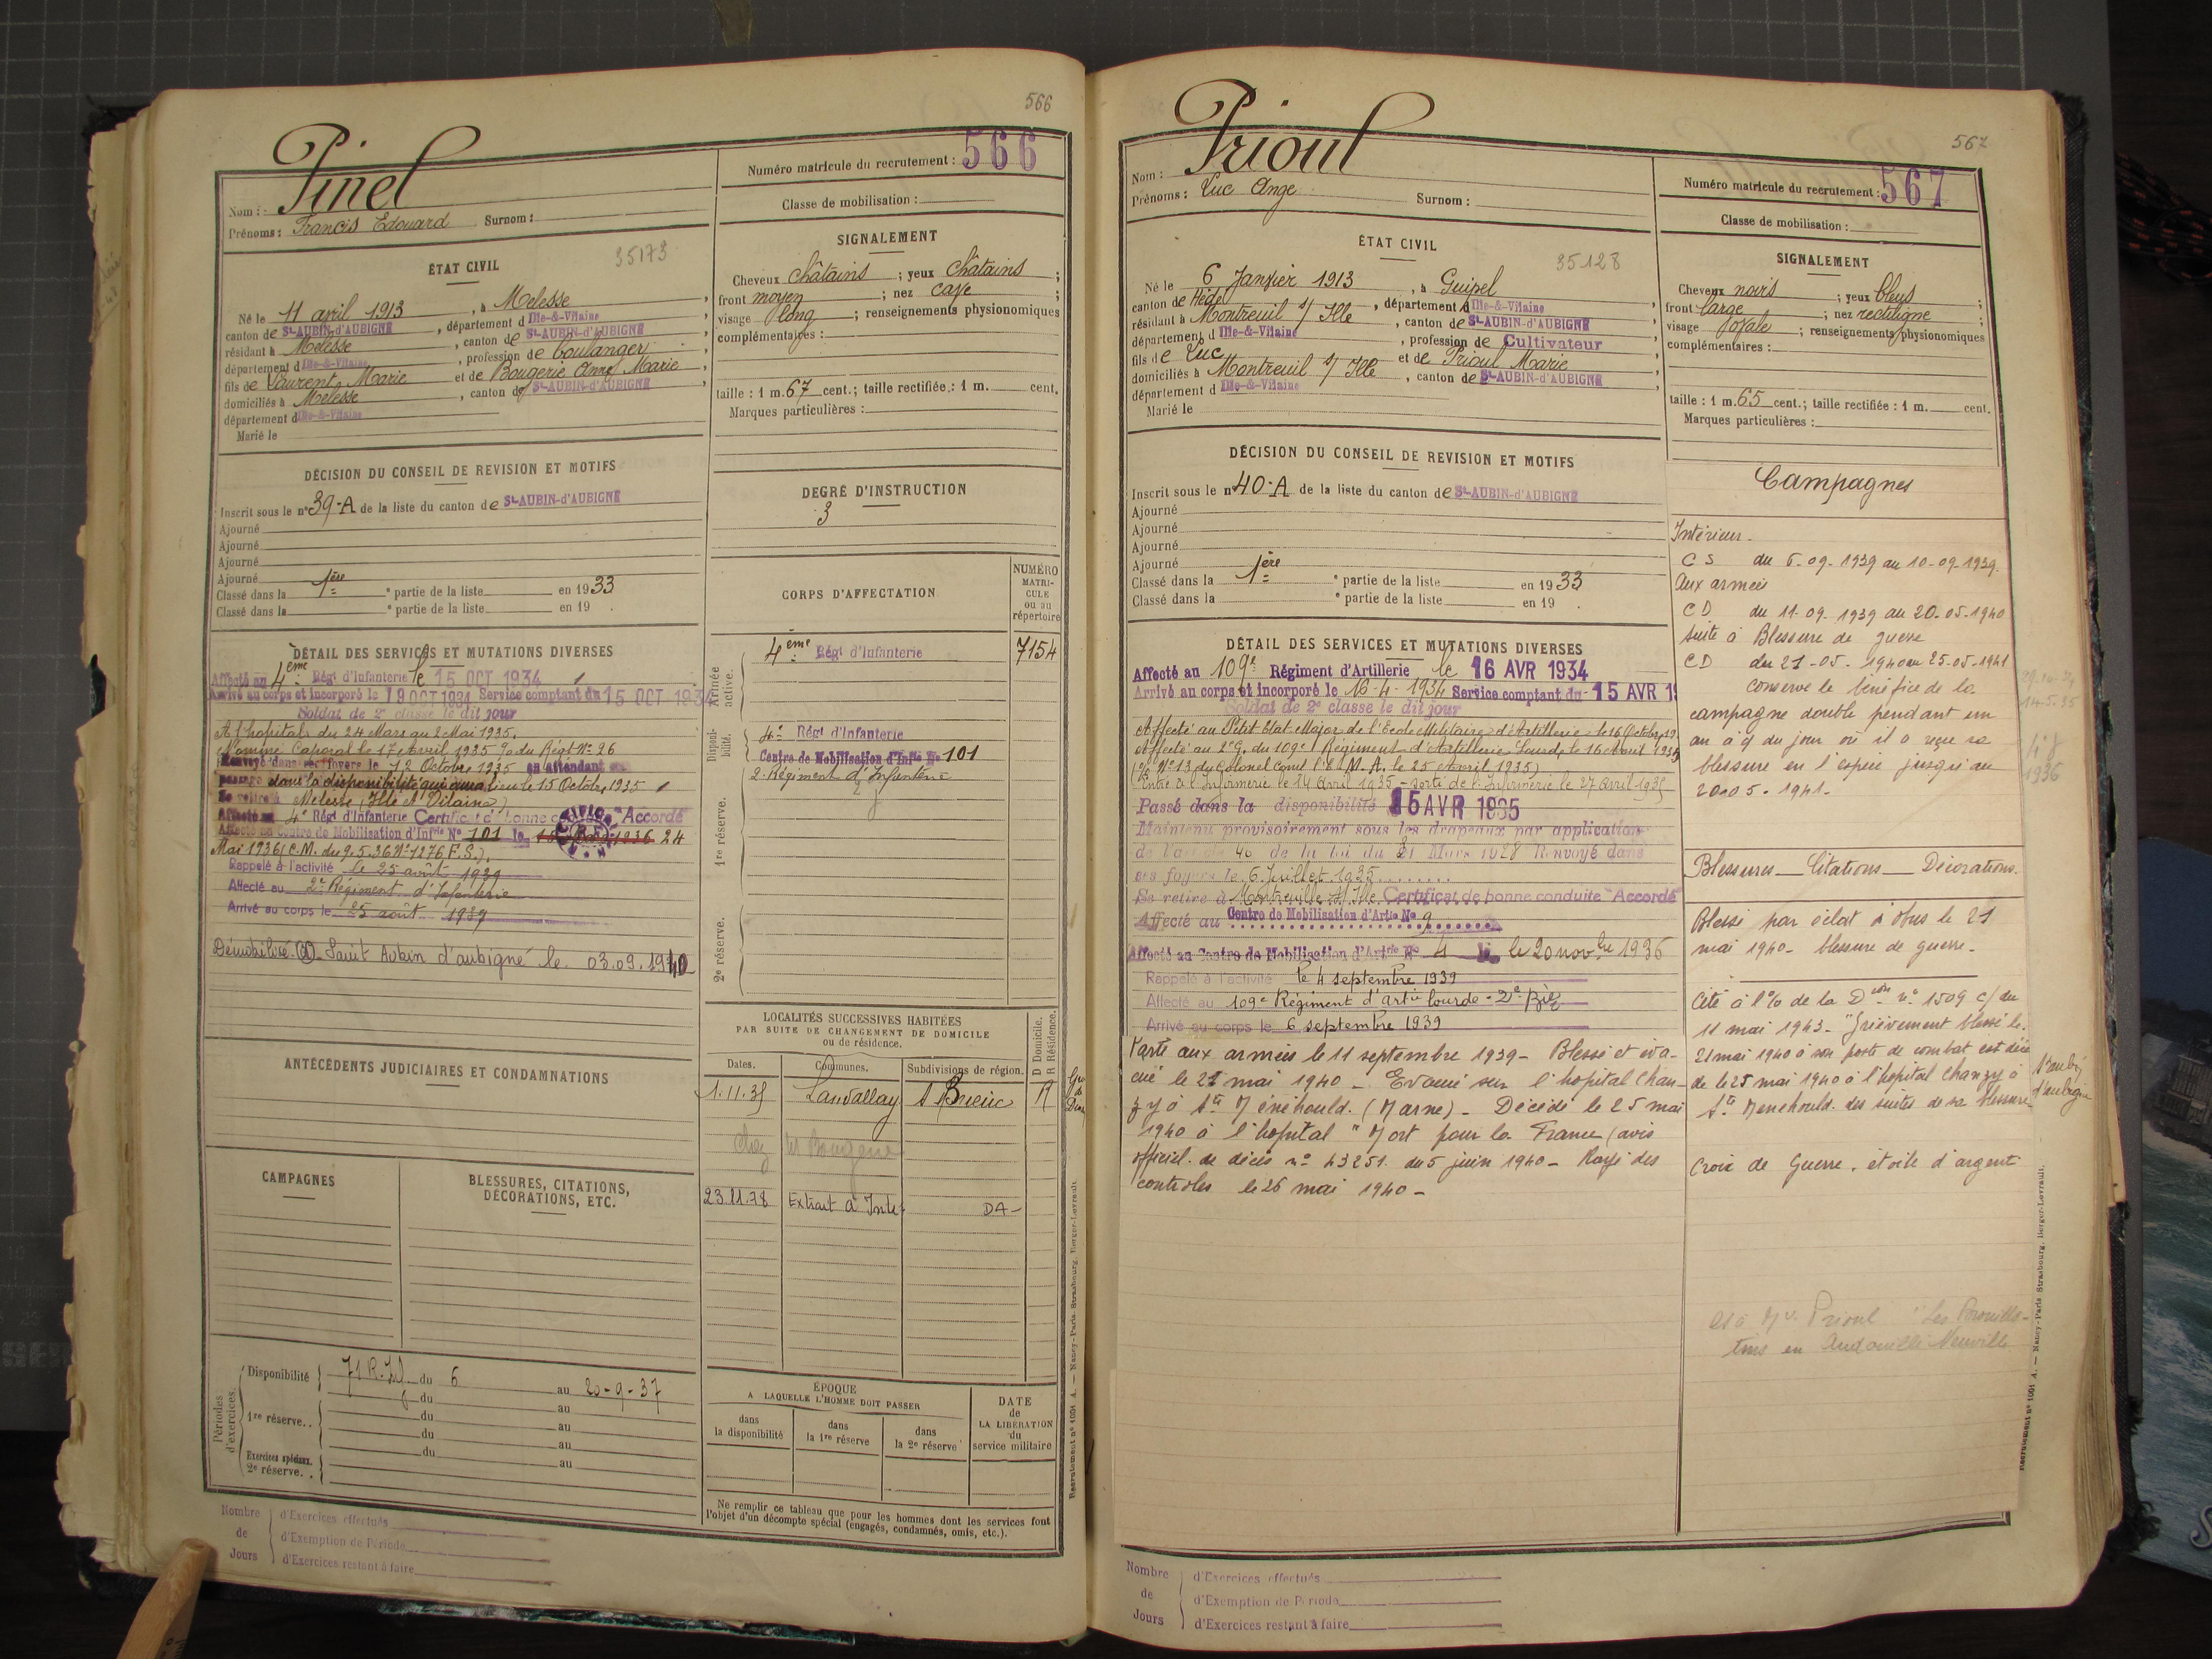 566
Pinel
Nom :
Prénoms : Francis Edouard Surnom :
Numéro matricule du recrutement : 566
Classe de mobilisation :
ÉTAT CIVIL
35173
Né le 11 avril 1913, à Melesse,
canton de St-AUBIN-d'AUBIGNÉ, département d Ille-&-Vilaine,
résidant à Melesse, canton de St-AUBIN-d'AUBIGNÉ,
département d Ille-&-Vilaine, profession de boulanger,
fils de Laurent Marie et de Bougerie Anne Marie,
domiciliés à Melesse, canton de St-AUBIN-d'AUBIGNÉ,
département d Ille-&-Vilaine
Marié le
SIGNALEMENT
Cheveux châtains ; yeux châtains ;
front moyen ; nez
visage long ; renseignements physionomiques
complémentaires :
taille : 1 m. 67 cent.; taille rectifiée : 1 m. cent.
Marques particulières :
DÉCISION DU CONSEIL DE REVISION ET MOTIFS
Inscrit sous le n° 39-A de la liste du canton de St-AUBIN-d'AUBIGNÉ
Ajourné
Ajourné
Ajourné
Ajourné
Classé dans la 1ère e partie de la liste en 1933
Classé dans la e partie de la liste en 19 .
DEGRÉ D'INSTRUCTION
3
CORPS D'AFFECTATION
NUMÉRO MATRI-CULE ou au répertoire
Armée active.
4ème Régt d'Infanterie 7154
Disponibilité.
4e Régt d'Infanterie
Centre de Mobilisation d'Infie No 101
2e Régiment d'Infanterie
1re réserve.
2e réserve.
DÉTAIL DES SERVICES ET MUTATIONS DIVERSES
Affecté au 4ème Régt d'Infanterie le 15 OCT 1934
Arrivé au corps et incorporé le 19 OCT 1934 Service comptant du 15 OCT 1934
Soldat de 2e classe le dit jour
A l'hopital du 24 Mars au 2 Mai 1935.
Nommé Caporal le 17 Avril 1935 % du Régt No 26
Renvoyé dans ses foyers le 12 Octobre 1935 en attendant son
passage dans la disponibilité qui aura lieu le 15 Octobre 1935
Se retire à Melesse (Ille et Vilaine)
Affecté au 4e Régt d'Infanterie Certificat de bonne conduite "Accordé"
Affecté au Centre de Mobilisation d'Infie No 101 le 24
Mai 1936 (C.M. du 9.5.36 No 1276 F.S.).
Rappelé à l'activité le 25 août 1939
Affecté au 2e Régiment d'Infanterie
Arrivé au corps le 25 août 1939
Démobilisé à Saint Aubin d'aubigné le 03.09.1940
ANTÉCÉDENTS JUDICIAIRES ET CONDAMNATIONS
LOCALITÉS SUCCESSIVES HABITÉES
PAR SUITE DE CHANGEMENT DE DOMICILE
ou de résidence.
D Domicile. R Résidence.
Dates. Communes. Subdivisions de région.
1.11.35 Lanvallay St Brieuc R
23.11.78 Extrait à DA-
CAMPAGNES
BLESSURES, CITATIONS,
DÉCORATIONS, ETC.
Périodes d'exercices.
Disponibilité 71 R.I. du 6 au 20-9-37
du au
1re réserve.. du au
du au
Exercices spéciaux. du au
2e réserve. .
ÉPOQUE
A LAQUELLE L'HOMME DOIT PASSER
dans la disponibilité
dans la 1re réserve
dans la 2e réserve
DATE de LA LIBÉRATION du service militaire
Ne remplir ce tableau que pour les hommes dont les services font
l'objet d'un décompte spécial (engagés, condamnés, omis, etc.).
Nombre de Jours
d'Exercices effectués
d'Exemption de Période
d'Exercices restant à faire
Recrutement n° 1001 A. — Nancy-Paris-Strasbourg, Berger-Levrault.
567
Prioul
Nom :
Prénoms : Luc Ange Surnom :
Numéro matricule du recrutement : 567
Classe de mobilisation :
ÉTAT CIVIL
35128
Né le 6 Janvier 1913, à Guipel
canton de Hédé, département d Ille-&-Vilaine,
résidant à Montreuil s/ Ille, canton de St-AUBIN-d'AUBIGNÉ,
département d Ille-&-Vilaine, profession de Cultivateur
fils de Luc et de Prioul Marie,
domiciliés à Montreuil s/ Ille, canton de St-AUBIN-d'AUBIGNÉ,
département d Ille-&-Vilaine
Marié le
SIGNALEMENT
Cheveux noirs ; yeux bleus ;
front large ; nez rectiligne ;
visage ovale ; renseignements physionomiques
complémentaires :
taille : 1 m. 65 cent.; taille rectifiée : 1 m. cent.
Marques particulières :
DÉCISION DU CONSEIL DE REVISION ET MOTIFS
Inscrit sous le n° 40-A de la liste du canton de St-AUBIN-d'AUBIGNÉ
Ajourné
Ajourné
Ajourné
Ajourné
Classé dans la 1ère e partie de la liste en 1933
Classé dans la e partie de la liste en 19 .
DÉTAIL DES SERVICES ET MUTATIONS DIVERSES
Affecté au 109e Régiment d'Artillerie le 16 AVR 1934
Arrivé au corps et incorporé le 16-4-1934 Service comptant du 15 AVR 19
Soldat de 2e classe le dit jour
Affecté au Petit Etat Major de l'Ecole Militaire d'Artillerie le 16 Octobre 19
Affecté au 2e G. du 109e Régiment d'Artillerie Lourde le 16 Avril 1935
(% No 13 du Colonel Comt l'E.M.A. le 25 Avril 1935)
Entré à l'Infirmerie le 14 Avril 1935 - sorti de l'Infirmerie le 27 Avril 1935
Passé dans la disponibilité 15 AVR 1935
Maintenu provisoirement sous les drapeaux par application
de l'article 40 de la loi du 31 Mars 1928 Renvoyé dans
ses foyers le 6 Juillet 1935
Se retire à Montreuil s/ Ille Certificat de bonne conduite "Accordé"
Affecté au Centre de Mobilisation d'Artie No 9
Affecté au Centre de Mobilisation d'Artie No 4 le 20 novbre 1936
Rappelé à l'activité le 4 septembre 1939
Affecté au 109e Régiment d'artie lourde - 21e Bie
Arrivé au corps le 6 septembre 1939
Parti aux armées le 11 septembre 1939 - Blessé et éva-
cué le 21 mai 1940 - Evacué sur l'hopital Chan-
zy à Ste Ménéhould. (Marne) - Décédé le 25 mai
1940 à l'hopital "Mort pour la France (avis
officiel de décès no 43251. du 5 juin 1940 - Rayé des
controles le 26 mai 1940 -
Campagnes
Intérieur.
C S du 6-09-1939 au 10-09-1939.
Aux armées
C D du 11-09-1939 au 20-05-1940
suite à Blessure de guerre
C D du 21-05-1940 au 25-05-1941
conserve le bénéfice de la
campagne double pendant un
an à % du jour où il a reçu sa
blessure en l'espèce jusqu'au
20.05.1941.
Blessures — Citations — Décorations.
Blessé par éclat d'obus le 21
mai 1940 - blessure de guerre -
Cité à l'% de la Don no 1509 C/ du
11 mai 1943 - "Grièvement blessé le
21 mai 1940 à son poste de combat est décé
dé le 25 mai 1940 à l'hopital Chanzy à
Ste Menehould. des suites de sa blessure -
Croix de Guerre. étoile d'argent
29-10-34
14-5-35
1936
St aubin
d'aubigné
Mr Prioul "Les
en Andouillé Neuville
Nombre de Jours
d'Exercices effectués
d'Exemption de Période
d'Exercices restant à faire
Recrutement n° 1001 A. — Nancy-Paris-Strasbourg, Berger-Levrault.